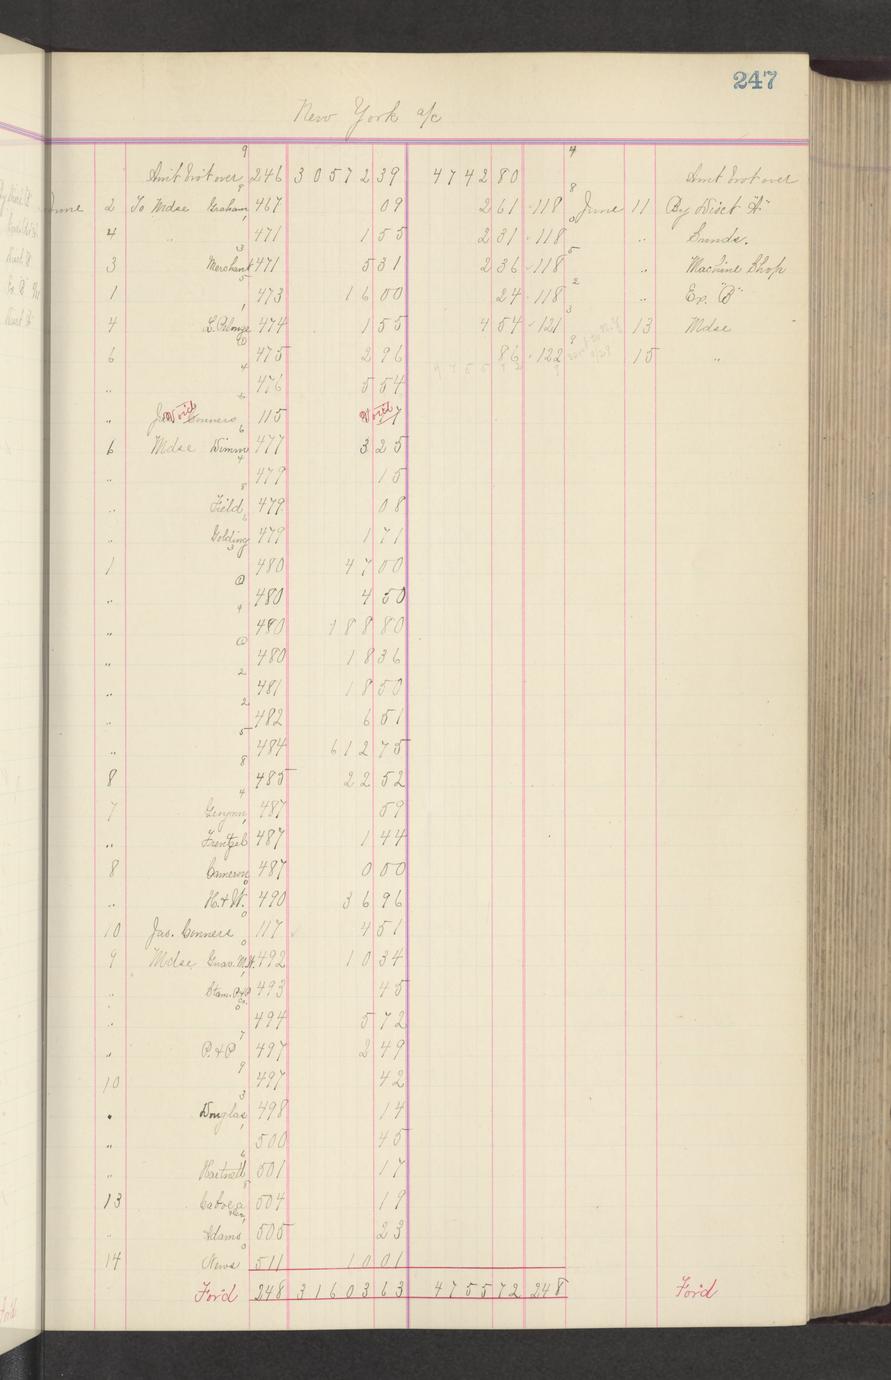 247
New York a/c
Amt brot over 246 30572 39 4742 80 Amt brot over
June 2 To Mdse Graham 467 09 2 61 118 June 11 By Disct "A"
4 " 471 1 55 2 31 118 " Sunds.
3 Merchant 471 5 31 2 36 118 " Machine Shop
1 473 16 00 24 118 " Ex. "B"
4 474 1 55 4 54 121 13 Mdse
6 475 2 96 86 122 15 "
" 476 5 54
" Void Conners 115 Void
6 Mdse Dimm 477 3 25
" 479 15
" Field 479 08
" Golding 479 1 71
1 480 47 00
" 480 4 50
" 480 188 80
" 480 18 36
" 481 18 50
" 482 6 51
" 484 612 75
8 485 22 52
7 487 59
" Frentzel 487 1 44
8 Cameron 487 0 00
" H. & W. 490 36 96
10 Jas. Conners 117 4 51
9 Mdse 492 10 34
" 493 45
" 494 5 72
" P. & P. 497 2 49
10 497 42
" Douglas 498 14
" 500 45
" Hartnett 501 17
13 504 19
" Adams 505 23
14 News 511 10 01
For'd 248 31603 63 4755 72 248 For'd